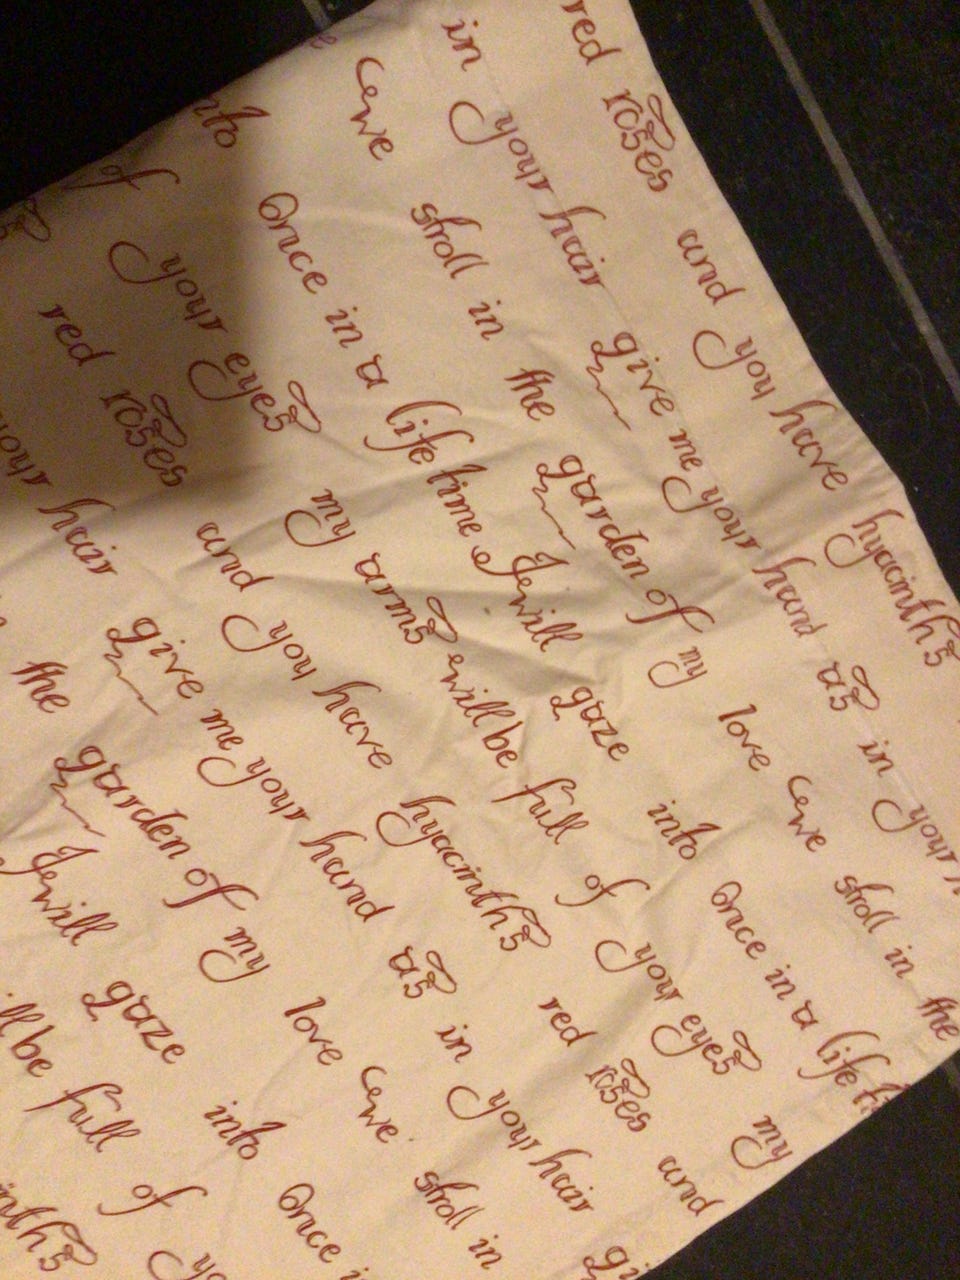 red roses and you have hyacinths
in your hair give me your hand as in your
we stroll in the garden of my love we stroll in the
into once in a life time I will gaze into once in a life
of your eyes my arms will be full of your eyes my
red roses and you have hyacinths red roses and
your hair give me your hand as in your hair
the garden of my love we stroll in
I will gaze into once
be full of